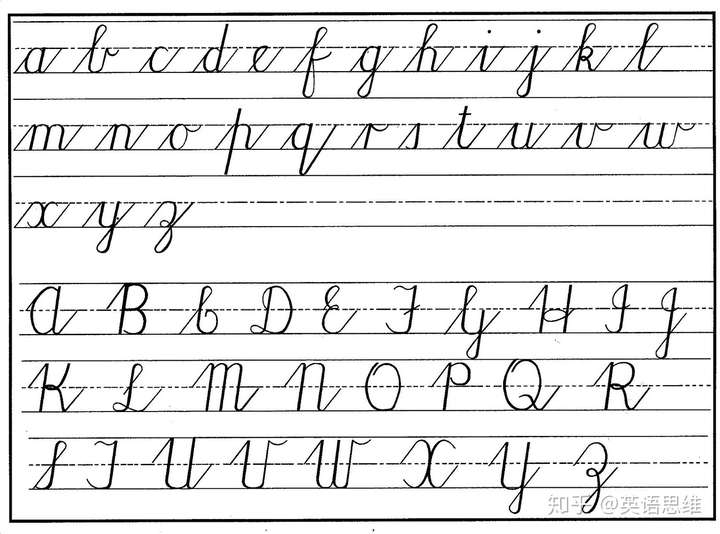 a b c d e f g h i j k l
m n o p q r s t u v w
x y z
A B C D E F G H I J
K L M N O P Q R
S T U V W X Y Z
知乎 @英语思维